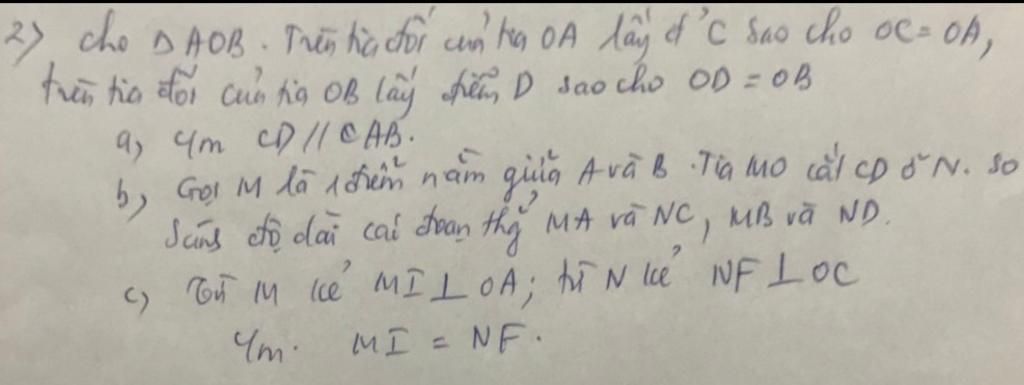 2) Cho Δ AOB. Trên tia đối của tia OA lấy đ' C sao cho OC = OA,
trên tia đối của tia OB lấy điểm D sao cho OD = OB
a, Cm CD // AB.
b, Gọi M là 1 điểm nằm giữa A và B. Tia MO cắt CD ở N. So
sánh độ dài cai đoạn thg MA và NC, MB và ND.
c, Từ M kẻ MI ⊥ OA; từ N kẻ NF ⊥ OC
Cm. MI = NF.